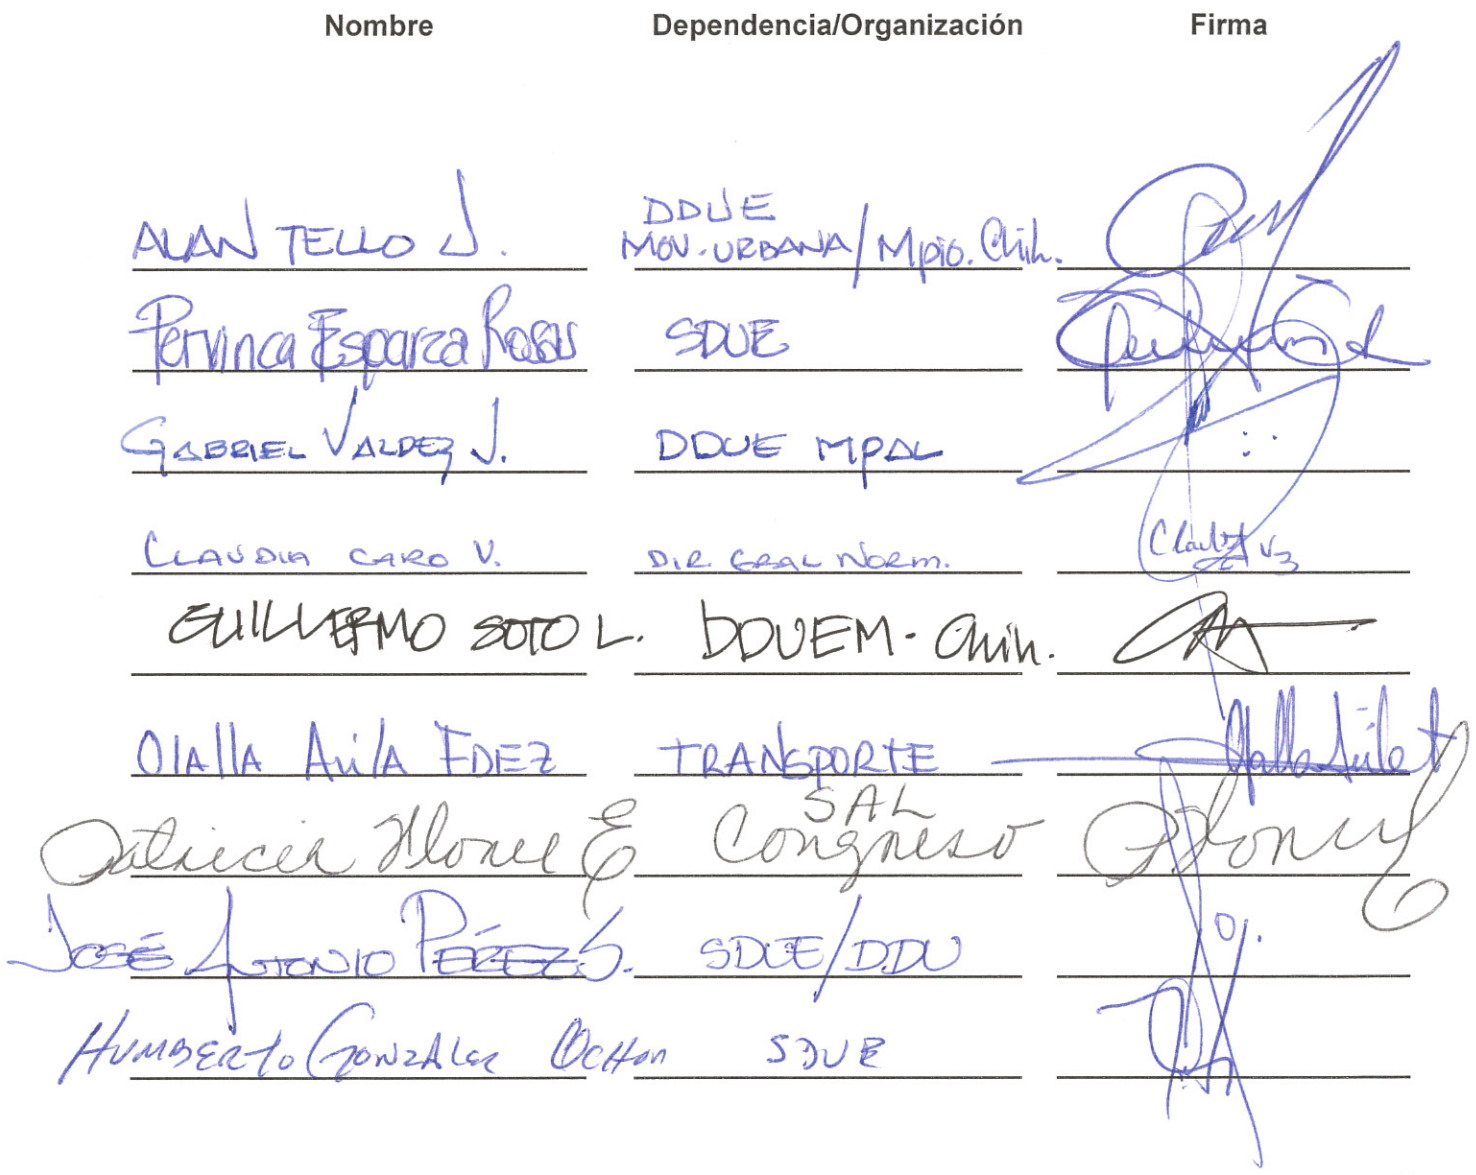 Nombre Dependencia/Organización Firma
ALAN TELLO J. DDUE
MOV. URBANA/Mpio. Chih.
Pervinca Esparza Rosas SDUE
GABRIEL VALDEZ J. DDUE MPAL
CLAUDIA CARO V. DIR. GRAL NORM.
GUILLERMO SOTO L. DDUEM-Chih.
Olalla Avila FDEZ TRANSPORTE
Patricia E SAL
Congreso
JOSÉ ANTONIO PÉREZ S. SDUE/DDU
HUMBERTO GONZÁLEZ OCHOA SDUE